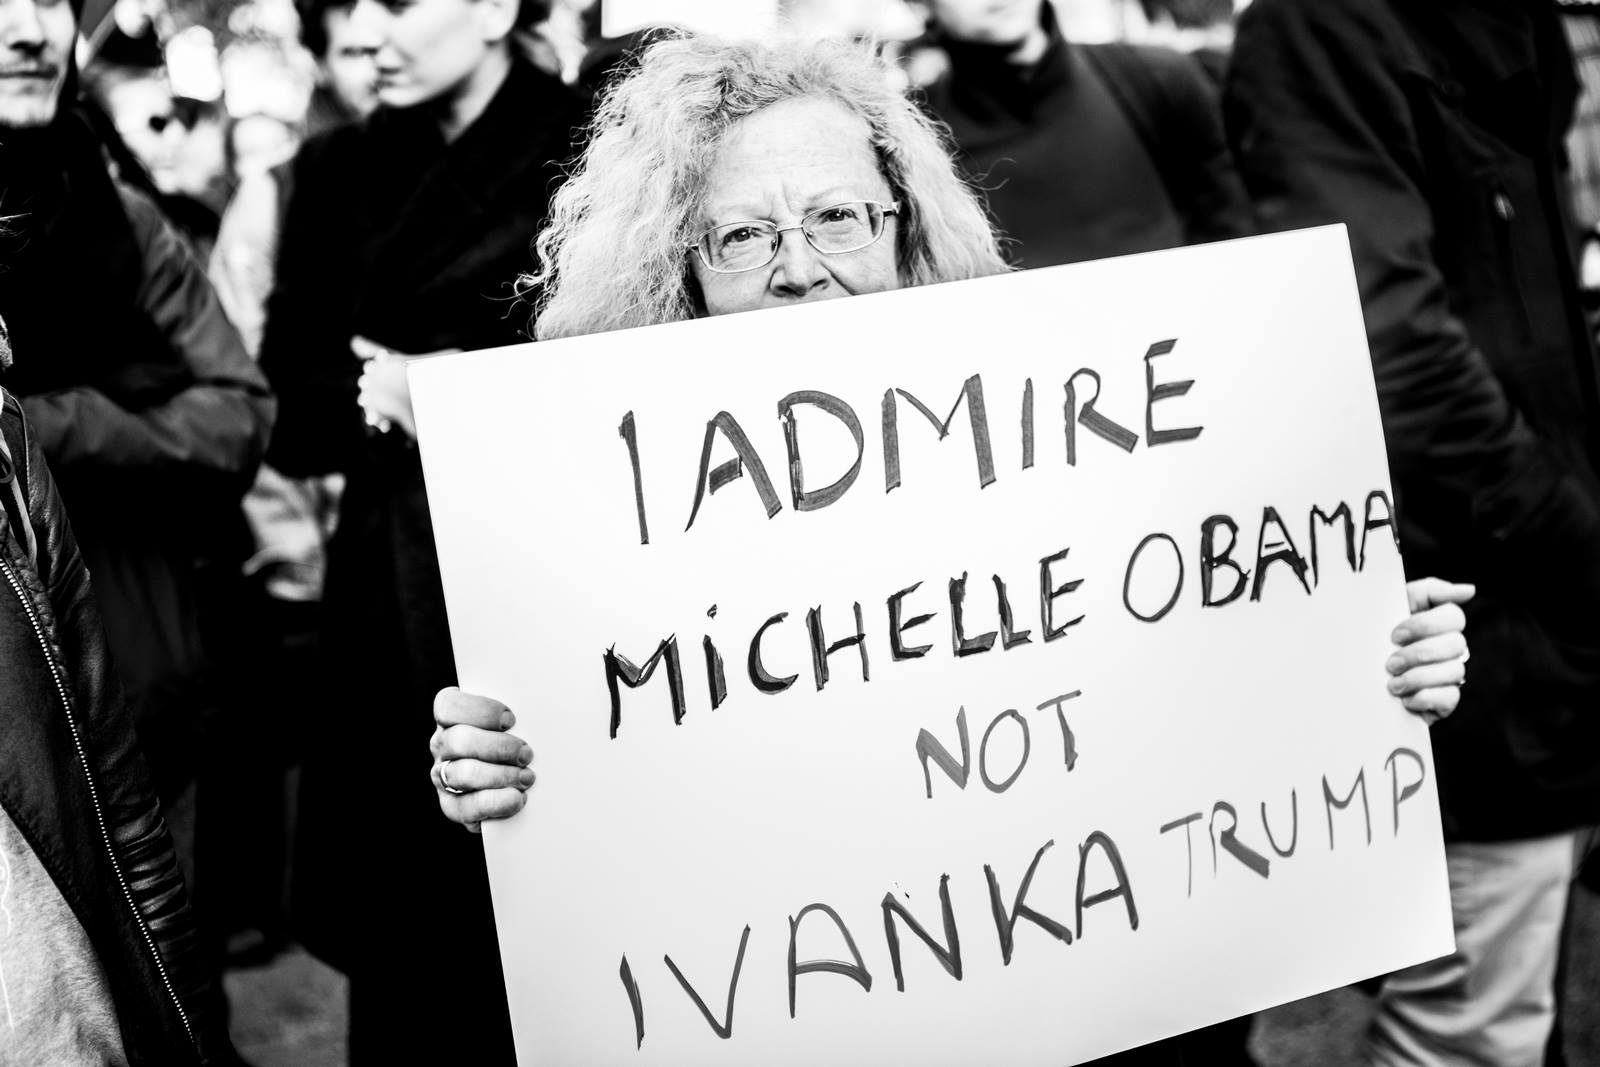 I ADMIRE
MiCHELLE OBAMA
NOT
IVANKA TRUMP